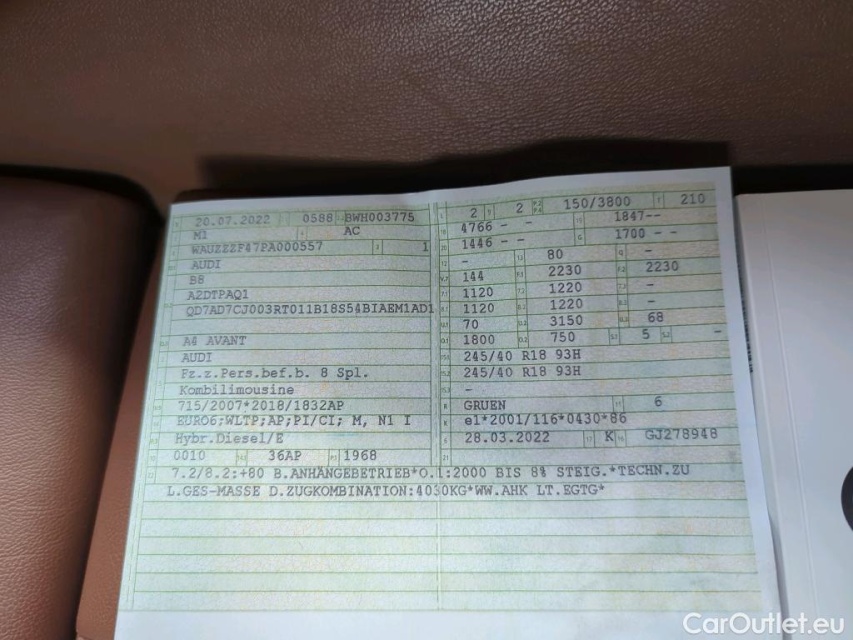 20.07.2022 0588 BWH003775
M1 AC
WAUZZZF47PA000557 1
AUDI
B8
A2DTPAQ1
QD7AD7CJ003RT011B18S54BIAEM1AD1
A4 AVANT
AUDI
Fz.z.Pers.bef.b. 8 Spl.
Kombilimousine
715/2007*2018/1832AP
EURO6;WLTP;AP;PI/CI; M, N1 I
Hybr.Diesel/E
0010 36AP 1968
2 2 150/3800 210
4766 - - 1847--
1446 - - 1700 --
- 80 -
144 2230 2230
1120 1220 -
1120 1220 -
70 3150 68
1800 750 5 -
245/40 R18 93H
245/40 R18 93H
-
GRUEN 6
e1*2001/116*0430*86
28.03.2022 K GJ278948
7.2/8.2:+80 B.ANHÄNGEBETRIEB*O.1:2000 BIS 8% STEIG.*TECHN.ZU
L.GES-MASSE D.ZUGKOMBINATION:4030KG*WW.AHK LT.EGTG*
CarOutlet.eu